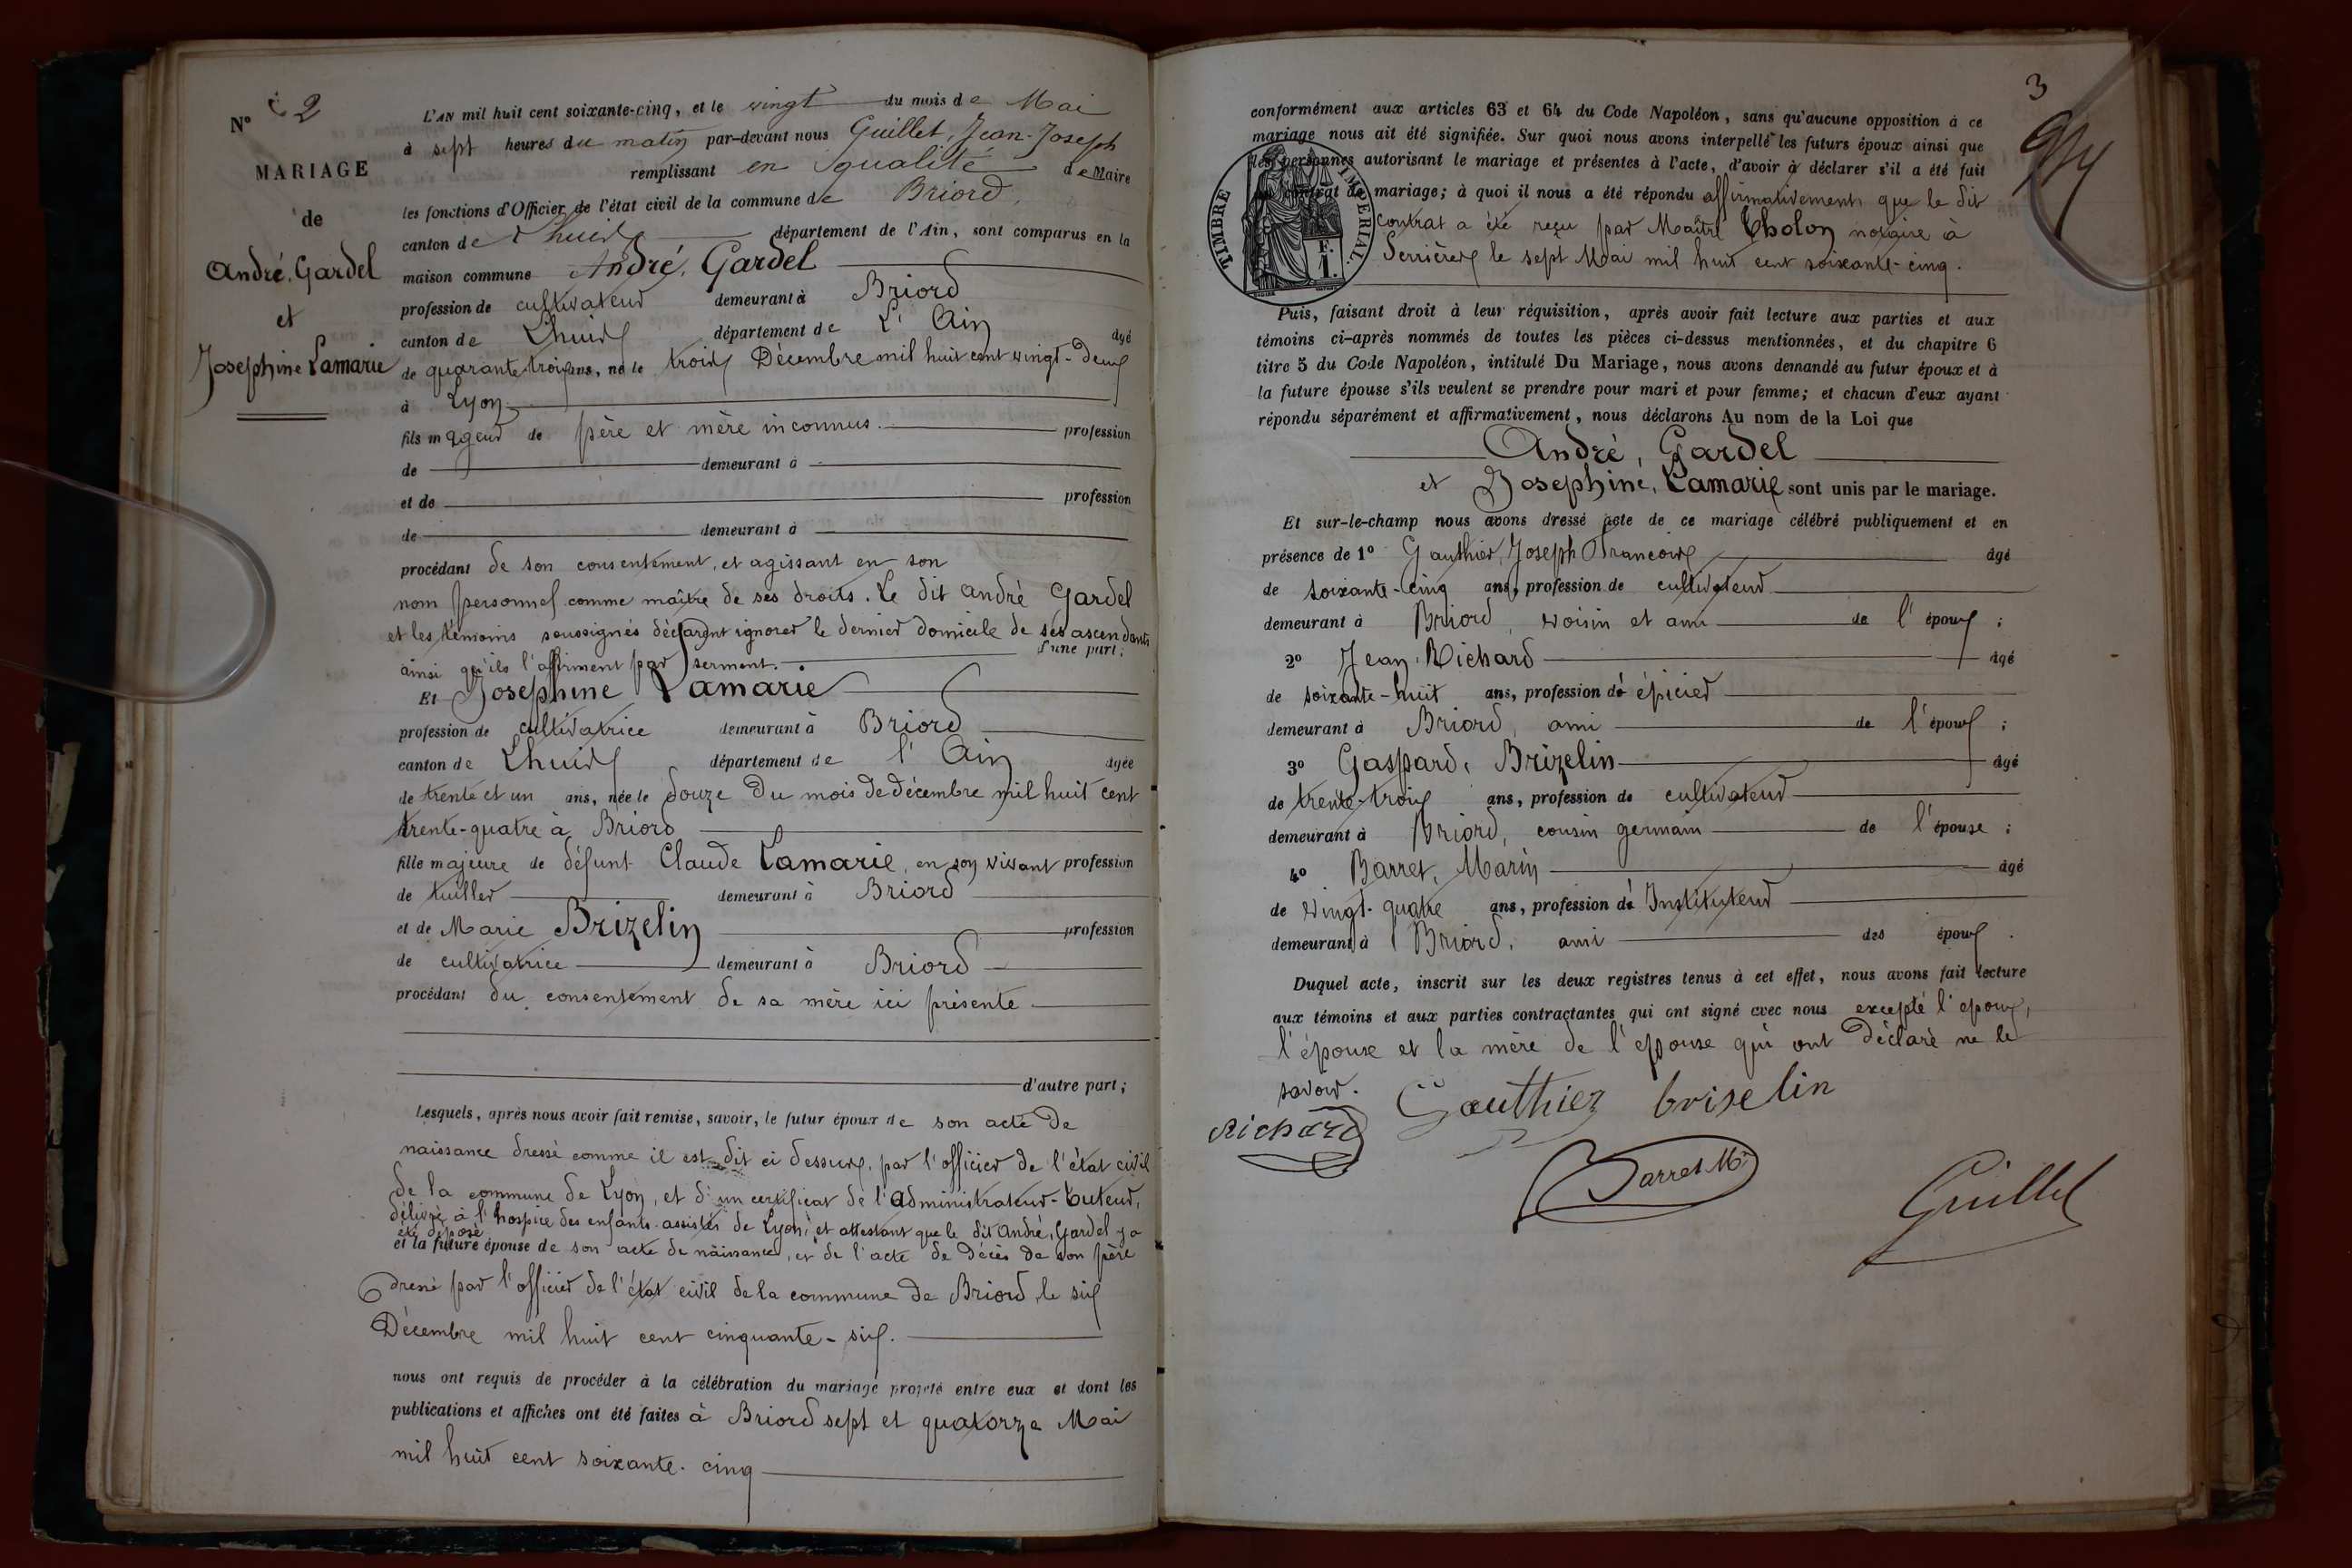 N° 2
MARIAGE
de
André, Gardel
et
Josephine Lamarie
L'AN mil huit cent soixante-cinq, et le vingt du mois de Mai
à sept heures du matin par-devant nous Guillet, Jean-Joseph
remplissant en qualité de Maire
les fonctions d'Officier de l'état civil de la commune de Briord,
canton de Lhuis département de l'Ain, sont comparus en la
maison commune André, Gardel
profession de cultivateur demeurant à Briord
canton de Lhuis département de L'Ain âgé
de quarante-trois ans, né le trois Décembre mil huit cent vingt-deux
à Lyon
fils majeur de père et mère inconnus. profession
de demeurant à
et de profession
de demeurant à
procédant de son consentement, et agissant en son
nom personnel comme maître de ses droits. Le dit André Gardel
et les témoins soussignés déclarent ignorer le dernier domicile de ses ascendants
ainsi qu'ils l'affirment par serment. d'une part;
Et Josephine Lamarie
profession de cultivatrice demeurant à Briord
canton de Lhuis département de l'Ain âgée
de trente et un ans, née le douze du mois de décembre mil huit cent
trente-quatre à Briord
fille majeure de défunt Claude Lamarie, en son vivant profession
de tuilier demeurant à Briord
et de Marie Brizelin profession
de cultivatrice demeurant à Briord
procédant du consentement de sa mère ici présente
d'autre part;
Lesquels, après nous avoir fait remise, savoir, le futur époux de son acte de
naissance dressé comme il est dit ci dessus, par l'officier de l'état civil
de la commune de Lyon, et d'un certificat de l'administrateur-tuteur,
délivré à l'hospice des enfants assistés de Lyon, et attestant que le dit André, Gardel y a
été déposé
et la future épouse de son acte de naissance, et de l'acte de décès de son père
dressé par l'officier de l'état civil de la commune de Briord, le six
Décembre mil huit cent cinquante-six.
nous ont requis de procéder à la célébration du mariage projeté entre eux et dont les
publications et affiches ont été faites à Briord sept et quatorze Mai
mil huit cent soixante-cinq
3
conformément aux articles 63 et 64 du Code Napoléon, sans qu'aucune opposition à ce
mariage nous ait été signifiée. Sur quoi nous avons interpellé les futurs époux ainsi que
les personnes autorisant le mariage et présentes à l'acte, d'avoir à déclarer s'il a été fait
contrat de mariage; à quoi il nous a été répondu affirmativement, que le dit
contrat a été reçu par Maître Tholon notaire à
Serrières le sept Mai mil huit cent soixante-cinq.
TIMBRE IMPÉRIAL
1 F.
Puis, faisant droit à leur réquisition, après avoir fait lecture aux parties et aux
témoins ci-après nommés de toutes les pièces ci-dessus mentionnées, et du chapitre 6
titre 5 du Code Napoléon, intitulé Du Mariage, nous avons demandé au futur époux et à
la future épouse s'ils veulent se prendre pour mari et pour femme; et chacun d'eux ayant
répondu séparément et affirmativement, nous déclarons Au nom de la Loi que
André, Gardel
et Josephine, Lamarie sont unis par le mariage.
Et sur-le-champ nous avons dressé acte de ce mariage célébré publiquement et en
présence de 1° Gauthier, Joseph Francois âgé
de soixante-cinq ans, profession de cultivateur
demeurant à Briord, voisin et ami de l'époux;
2° Jean, Richard âgé
de soixante-huit ans, profession de épicier
demeurant à Briord, ami de l'époux;
3° Gaspard, Brizelin âgé
de trente-trois ans, profession de cultivateur
demeurant à Briord, cousin germain de l'épouse;
4° Barret, Marin âgé
de vingt-quatre ans, profession de Instituteur
demeurant à Briord, ami des époux.
Duquel acte, inscrit sur les deux registres tenus à cet effet, nous avons fait lecture
aux témoins et aux parties contractantes qui ont signé avec nous excepté l'epoux,
l'épouse et la mère de l'epouse qui ont déclaré ne le
savoir. Gauthier briselin
Richard
Barret M.
Guillet